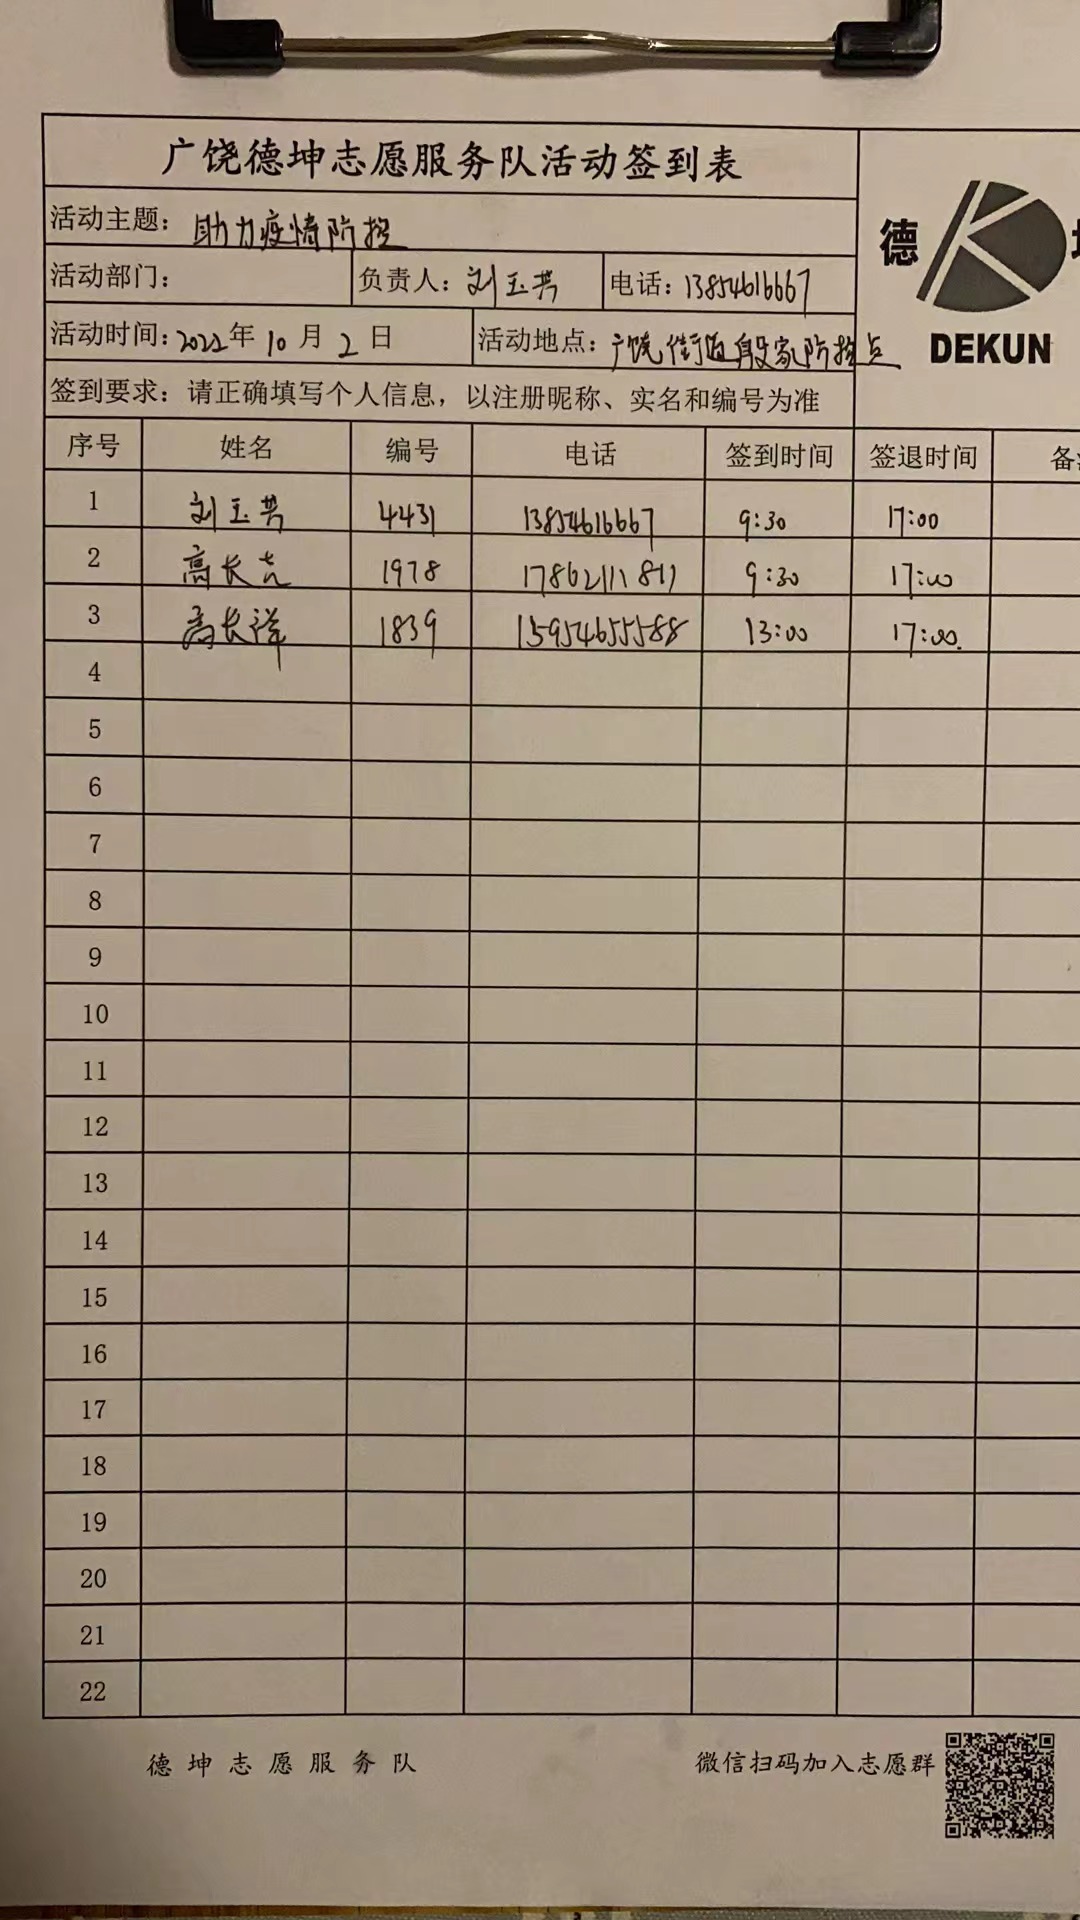 广饶德坤志愿服务队活动签到表
德
DEKUN
活动主题：助力疫情防控
活动部门： 负责人：刘玉芳 电话：13854616667
活动时间：2022年10月2日 活动地点：广饶街道殷家防控点
签到要求：请正确填写个人信息，以注册昵称、实名和编号为准
序号 姓名 编号 电话 签到时间 签退时间 备
1 刘玉芳 4431 13854616667 9:30 17:00
2 高长 1978 17862111811 9:30 17:00
3 高长洋 1839 15954655588 13:00 17:00.
4
5
6
7
8
9
10
11
12
13
14
15
16
17
18
19
20
21
22
德坤志愿服务队 微信扫码加入志愿群